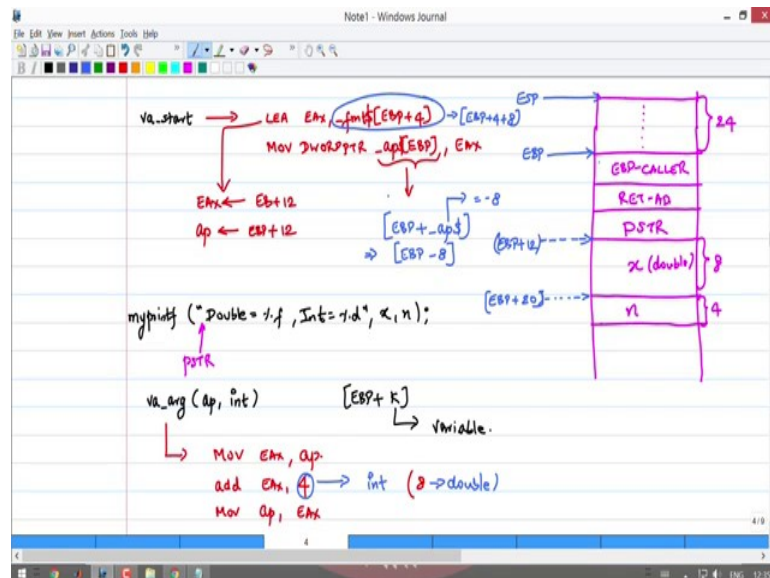 Note1 - Windows Journal
File Edit View Insert Actions Tools Help
B I
va_start → LEA EAX, _fmt$[EBP+4] → [EBP+4+8]
MOV DWORDPTR _ap$[EBP], EAX
EAX ← EB+12
ap ← EBP+12
→ = -8
[EBP+_ap$]
⇒ [EBP-8]
ESP
24
EBP
EBP-CALLER
RET-AD
PSTR
(EBP+12)
x (double) 8
[EBP+20]
n 4
myprintf ("Double = %f, Int = %d", x, n);
PSTR
va_arg (ap, int) [EBP+K]
→ variable.
→ Mov EAX, ap.
add EAX, 4 → int (8→double)
Mov ap, EAX
4/9
4
ENG